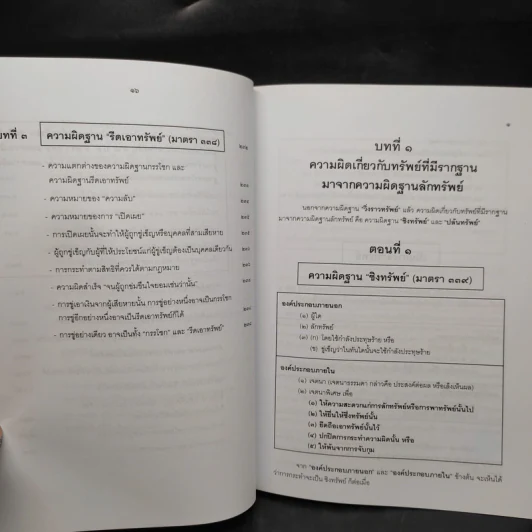 ๑๖
บทที่ ๓
ความผิดฐาน "รีดเอาทรัพย์" (มาตรา ๓๓๘)
- ความแตกต่างของความผิดฐานกรรโชก และ
ความผิดฐานรีดเอาทรัพย์
- ความหมายของ "ความลับ"
- ความหมายของการ "เปิดเผย"
- การเปิดเผยนั้นจะทำให้ผู้ถูกขู่เข็ญหรือบุคคลที่สามเสียหาย
- ผู้ถูกขู่เข็ญกับผู้ที่ให้ประโยชน์แก่ผู้ขู่เข็ญต้องเป็นบุคคลเดียวกัน
- การกระทำตามสิทธิที่ควรได้ตามกฎหมาย
- ความผิดสำเร็จ "จนผู้ถูกข่มขืนใจยอมเช่นว่านั้น"
- การขู่เอาเงินจากผู้เสียหายนั้น การขู่อย่างหนึ่งอาจเป็นกรรโชก
การขู่อีกอย่างหนึ่งอาจเป็นรีดเอาทรัพย์ก็ได้
- การขู่อย่างเดียว อาจเป็นทั้ง "กรรโชก" และ "รีดเอาทรัพย์"
๑
บทที่ ๑
ความผิดเกี่ยวกับทรัพย์ที่มีรากฐาน
มาจากความผิดฐานลักทรัพย์
นอกจากความผิดฐาน "วิ่งราวทรัพย์" แล้ว ความผิดเกี่ยวกับทรัพย์ที่มีรากฐาน
มาจากความผิดฐานลักทรัพย์ คือ ความผิดฐาน "ชิงทรัพย์" และ "ปล้นทรัพย์"
ตอนที่ ๑
ความผิดฐาน "ชิงทรัพย์" (มาตรา ๓๓๙)
องค์ประกอบภายนอก
(๑) ผู้ใด
(๒) ลักทรัพย์
(๓) (ก) โดยใช้กำลังประทุษร้าย หรือ
(ข) ขู่เข็ญว่าในทันใดนั้นจะใช้กำลังประทุษร้าย
องค์ประกอบภายใน
(๑) เจตนา (เจตนาธรรมดา กล่าวคือ ประสงค์ต่อผล หรือเล็งเห็นผล)
(๒) เจตนาพิเศษ เพื่อ
(๑) ให้ความสะดวกแก่การลักทรัพย์หรือการพาทรัพย์นั้นไป
(๒) ให้ยื่นให้ซึ่งทรัพย์นั้น
(๓) ยึดถือเอาทรัพย์นั้นไว้
(๔) ปกปิดการกระทำความผิดนั้น หรือ
(๕) ให้พ้นจากการจับกุม
จาก "องค์ประกอบภายนอก" และ "องค์ประกอบภายใน" ข้างต้น จะเห็นได้
ว่าการกระทำจะเป็น ชิงทรัพย์ ก็ต่อเมื่อ